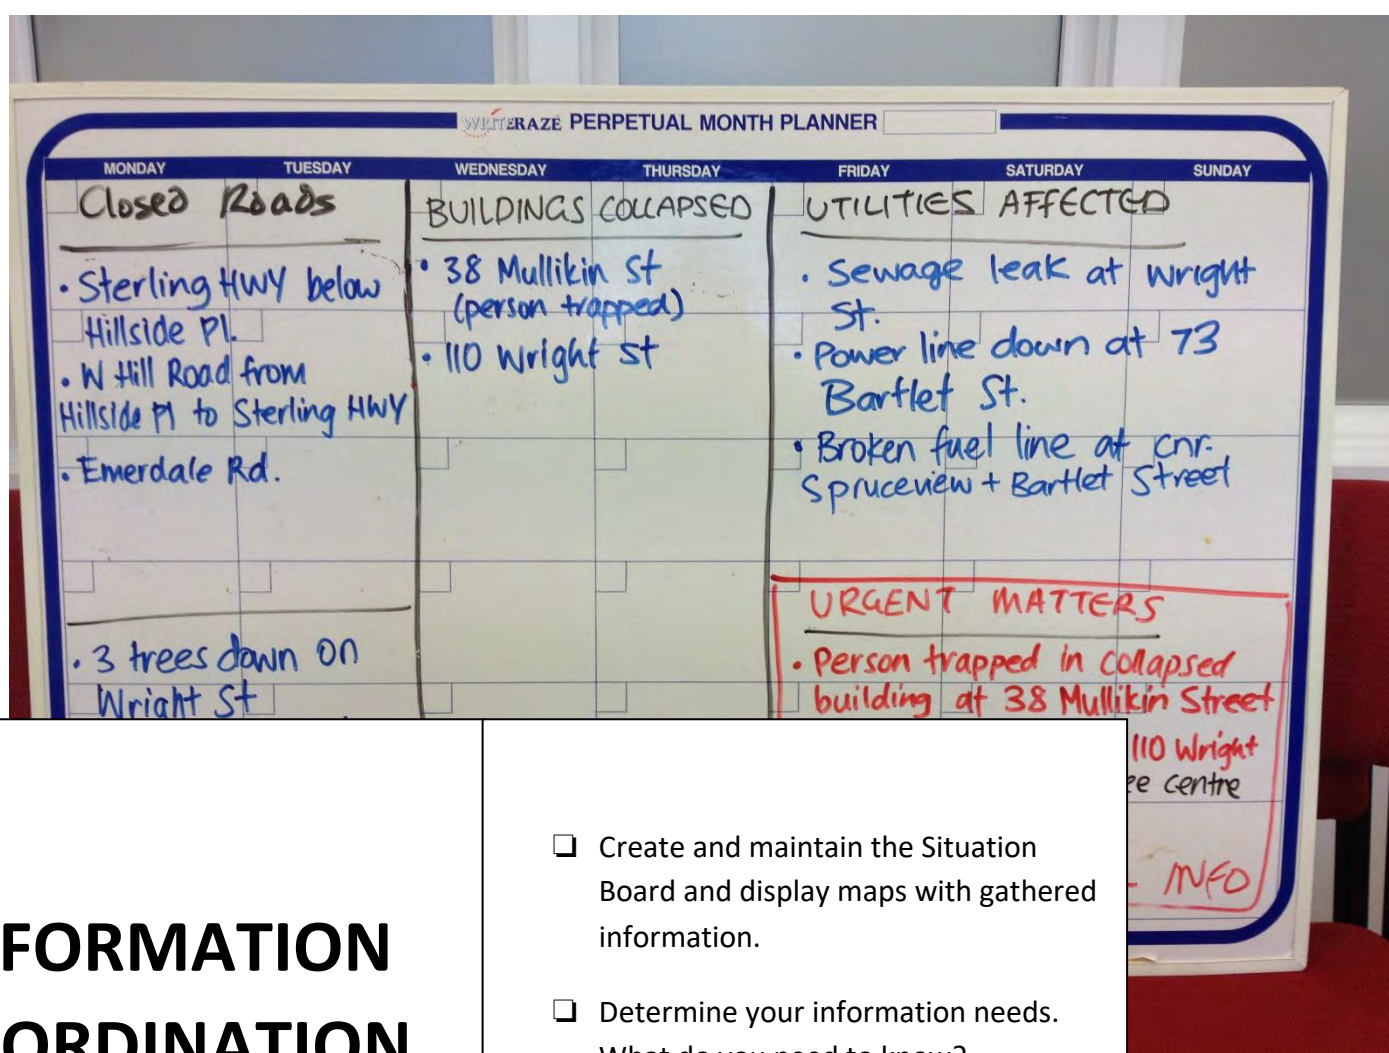 WRITERAZE PERPETUAL MONTH PLANNER
MONDAY TUESDAY WEDNESDAY THURSDAY FRIDAY SATURDAY SUNDAY
Closed Roads
• Sterling HWY below
Hillside Pl.
• W Hill Road from
Hillside Pl to Sterling HWY
• Emerdale Rd.
• 3 trees down on
Wright St
BUILDINGS COLLAPSED
• 38 Mullikin St
(person trapped)
• 110 Wright St
UTILITIES AFFECTED
• Sewage leak at Wright
St.
• Power line down at 73
Bartlet St.
• Broken fuel line at cnr.
Spruceview + Bartlet Street
URGENT MATTERS
• Person trapped in collapsed
building at 38 Mullikin Street
110 Wright
centre
INFO
FORMATION
ORDINATION
❏ Create and maintain the Situation
Board and display maps with gathered
information.
❏ Determine your information needs.
What do you need to know?